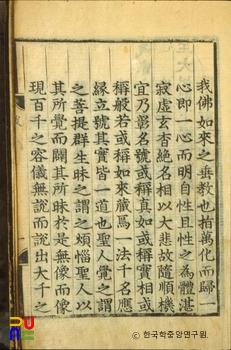 我佛如來之垂教也指萬化而歸一
心即一心而明自性且性之為體湛
寂虛玄杳絶名相以大悲故隨順機
宜乃彰名號或稱真如或稱實相或
稱般若或稱如來藏焉一法千名應
緣立號其實皆一道也聖人覺之謂
之菩提群生昧之謂之煩惱聖人以
其所覺而闢其所昧於是無像而像
現百千之容儀無說而說出大千之
한국학중앙연구원